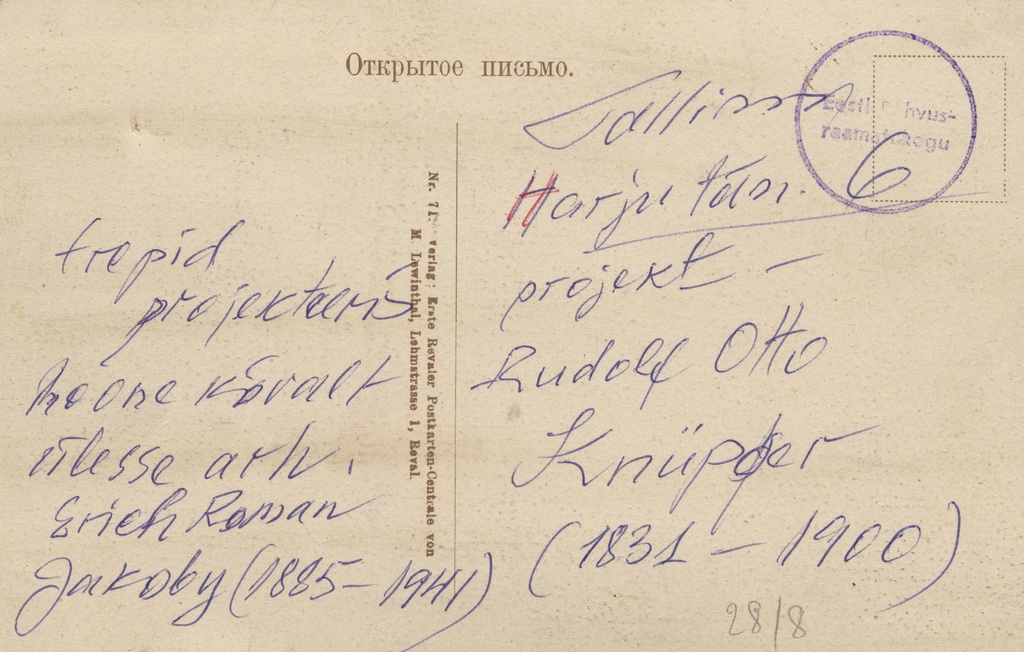 Открытое письмо.
Eesti hvus-
raamatukogu
Tallinn
Harju tän. 6
projekt –
Rudolf Otto
Knüpfer
(1831 – 1900)
28/8
Nr. 71. Verlag: Erste Revaler Postkarten-Centrale von
M. Lewinthal, Lehmstrasse 1, Reval.
trepid
projekteeris
hoone kõrvalt
ülesse arh.
Erich Roman
Jakoby (1885 – 1941)